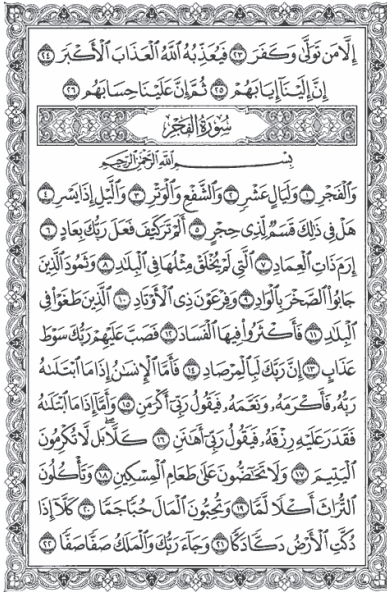 إِلَّا مَن تَوَلَّىٰ وَكَفَرَ ٢٣ فَيُعَذِّبُهُ ٱللَّهُ ٱلْعَذَابَ ٱلْأَكْبَرَ ٢٤
إِنَّ إِلَيْنَآ إِيَابَهُمْ ٢٥ ثُمَّ إِنَّ عَلَيْنَا حِسَابَهُم ٢٦
سُورَةُ الفَجْرِ
بِسْمِ ٱللَّهِ ٱلرَّحْمَٰنِ ٱلرَّحِيمِ
وَٱلْفَجْرِ ١ وَلَيَالٍ عَشْرٍ ٢ وَٱلشَّفْعِ وَٱلْوَتْرِ ٣ وَٱلَّيْلِ إِذَا يَسْرِ ٤
هَلْ فِى ذَٰلِكَ قَسَمٌ لِّذِى حِجْرٍ ٥ أَلَمْ تَرَ كَيْفَ فَعَلَ رَبُّكَ بِعَادٍ ٦
إِرَمَ ذَاتِ ٱلْعِمَادِ ٧ ٱلَّتِى لَمْ يُخْلَقْ مِثْلُهَا فِى ٱلْبِلَٰدِ ٨ وَثَمُودَ ٱلَّذِينَ
جَابُوا۟ ٱلصَّخْرَ بِٱلْوَادِ ٩ وَفِرْعَوْنَ ذِى ٱلْأَوْتَادِ ١٠ ٱلَّذِينَ طَغَوْا۟ فِى
ٱلْبِلَٰدِ ١١ فَأَكْثَرُوا۟ فِيهَا ٱلْفَسَادَ ١٢ فَصَبَّ عَلَيْهِمْ رَبُّكَ سَوْطَ
عَذَابٍ ١٣ إِنَّ رَبَّكَ لَبِٱلْمِرْصَادِ ١٤ فَأَمَّا ٱلْإِنسَٰنُ إِذَا مَا ٱبْتَلَىٰهُ
رَبُّهُۥ فَأَكْرَمَهُۥ وَنَعَّمَهُۥ فَيَقُولُ رَبِّىٓ أَكْرَمَنِ ١٥ وَأَمَّآ إِذَا مَا ٱبْتَلَىٰهُ
فَقَدَرَ عَلَيْهِ رِزْقَهُۥ فَيَقُولُ رَبِّىٓ أَهَٰنَنِ ١٦ كَلَّا بَل لَّا تُكْرِمُونَ
ٱلْيَتِيمَ ١٧ وَلَا تَحَٰٓضُّونَ عَلَىٰ طَعَامِ ٱلْمِسْكِينِ ١٨ وَتَأْكُلُونَ
ٱلتُّرَاثَ أَكْلًا لَّمًّا ١٩ وَتُحِبُّونَ ٱلْمَالَ حُبًّا جَمًّا ٢٠ كَلَّآ إِذَا
دُكَّتِ ٱلْأَرْضُ دَكًّا دَكًّا ٢١ وَجَآءَ رَبُّكَ وَٱلْمَلَكُ صَفًّا صَفًّا ٢٢